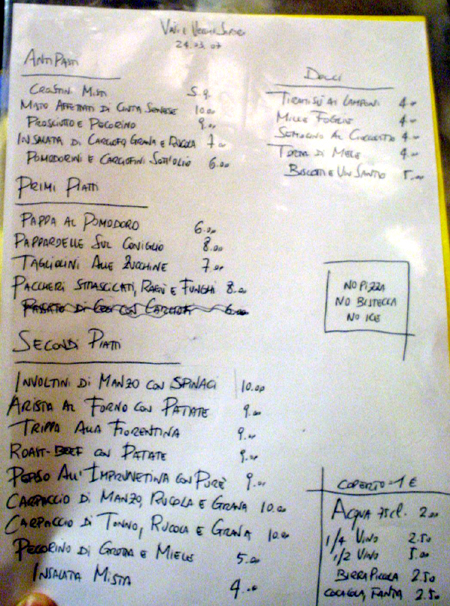 24.05.07
ANTIPASTI
CROSTINI MISTI 5.00
MISTO AFFETTATI DI CINTA SENESE 10.00
PROSCIUTTO E PECORINO 9.00
INSALATA DI CARCIOFI, GRANA E RUCOLA 7.00
POMODORINI E CARCIOFINI SOTT'OLIO 6.00
PRIMI PIATTI
PAPPA AL POMODORO 6.00
PAPPARDELLE SUL CONIGLIO 8.00
TAGLIOLINI ALLE ZUCCHINE 7.00
PACCHERI STRASCICATI, RAGÙ E FUNGHI 8.00
PASSATO DI CECI CON 6.00
SECONDI PIATTI
INVOLTINI DI MANZO CON SPINACI 10.00
ARISTA AL FORNO CON PATATE 9.00
TRIPPA ALLA FIORENTINA 9.00
ROAST-BEEF CON PATATE 9.00
PEPOSO ALL'IMPRUNETINA CON PURÈ 9.00
CARPACCIO DI MANZO, RUCOLA E GRANA 10.00
CARPACCIO DI TONNO, RUCOLA E GRANA 10.00
PECORINO DI GROTTA E MIELE 5.00
INSALATA MISTA 4.00
DOLCI
TIRAMISÙ AI LAMPONI 4.00
MILLE FOGLIE 4.00
SEMIFREDDO AL 4.00
TORTA DI MELE 4.00
BISCOTTI E VIN SANTO 5.00
NO PIZZA
NO BISTECCA
NO ICE
COPERTO 1 €
ACQUA 75CL. 2.00
1/4 VINO 2.50
1/2 VINO 5.00
BIRRA PICCOLA 2.50
COCACOLA, FANTA 2.50